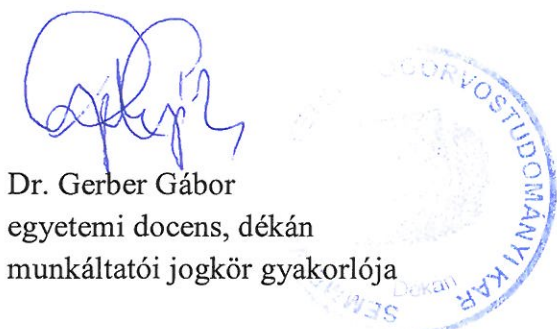 Dr. Gerber Gábor
egyetemi docens, dékán
munkáltatói jogkör gyakorlója
FOGORVOSTUDOMÁNYI KAR
Dékán